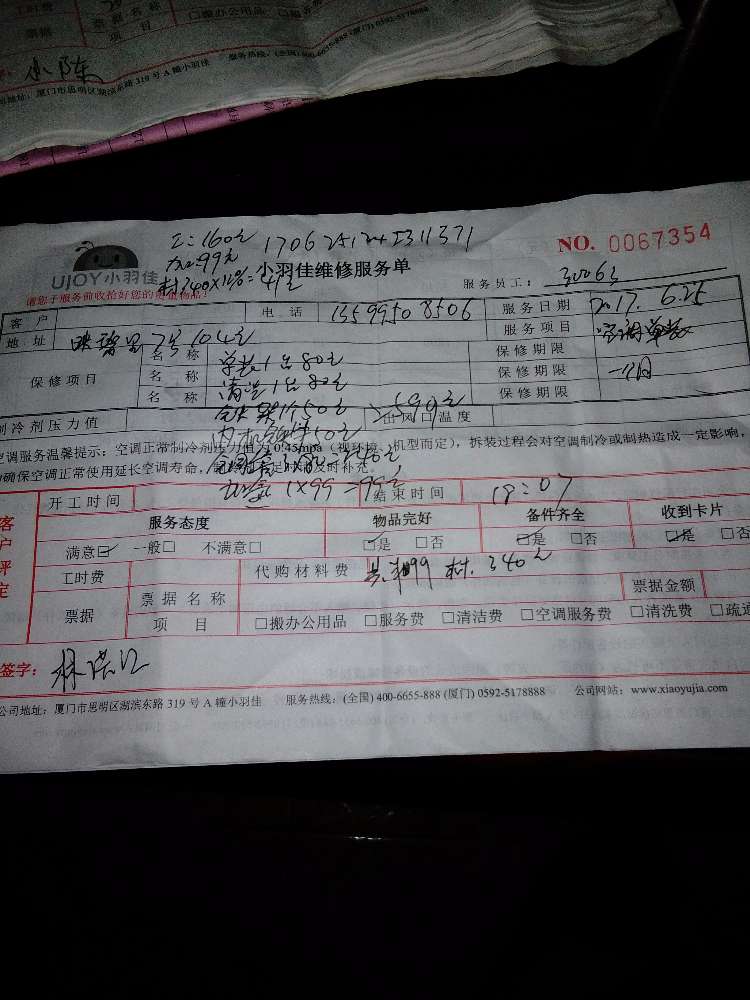 工时费
票据
项 目
□搬办公用品
小陈
厦门市思明区湖滨东路 319 号 A 幢小羽佳 服务热线：(全国) 400-6655-888 (厦门) 0592-5178888
工：160元
加：99元
材340×12%=41元
UJOY小羽佳
小羽佳维修服务单
NO. 0067354
服务员工：
请您于服务前收拾好您的贵重物品！
客 户
电 话 13599508506
服务日期 2017. 6.25
地 址 7号104室
服务项目 空调单装
保修项目
名 称 单装1台80元
保修期限
名 称 清洗1台80元
保修期限 一个月
名 称
保修期限
制冷剂压力值
590元
出风口温度
空调服务温馨提示：空调正常制冷剂压力值为0.45mpa（视环境、机型而定），拆装过程会对空调制冷或制热造成一定影响，
确保空调正常使用延长空调寿命，
及时补充。
加氟1×99=99元
开工时间
结束时间 18:07
客户评定
服务态度 物品完好 备件齐全 收到卡片
满意☑ 一般□ 不满意□ ☑是 □否 ☑是 □否 ☑是 □否
工时费
代购材料费
材. 340元
票据
票据名称
票据金额
项 目 □搬办公用品 □服务费 □清洁费 □空调服务费 □清洗费 □疏通
签字：
公司地址：厦门市思明区湖滨东路 319 号 A 幢小羽佳 服务热线：(全国) 400-6655-888 (厦门) 0592-5178888 公司网站：www.xiaoyujia.com